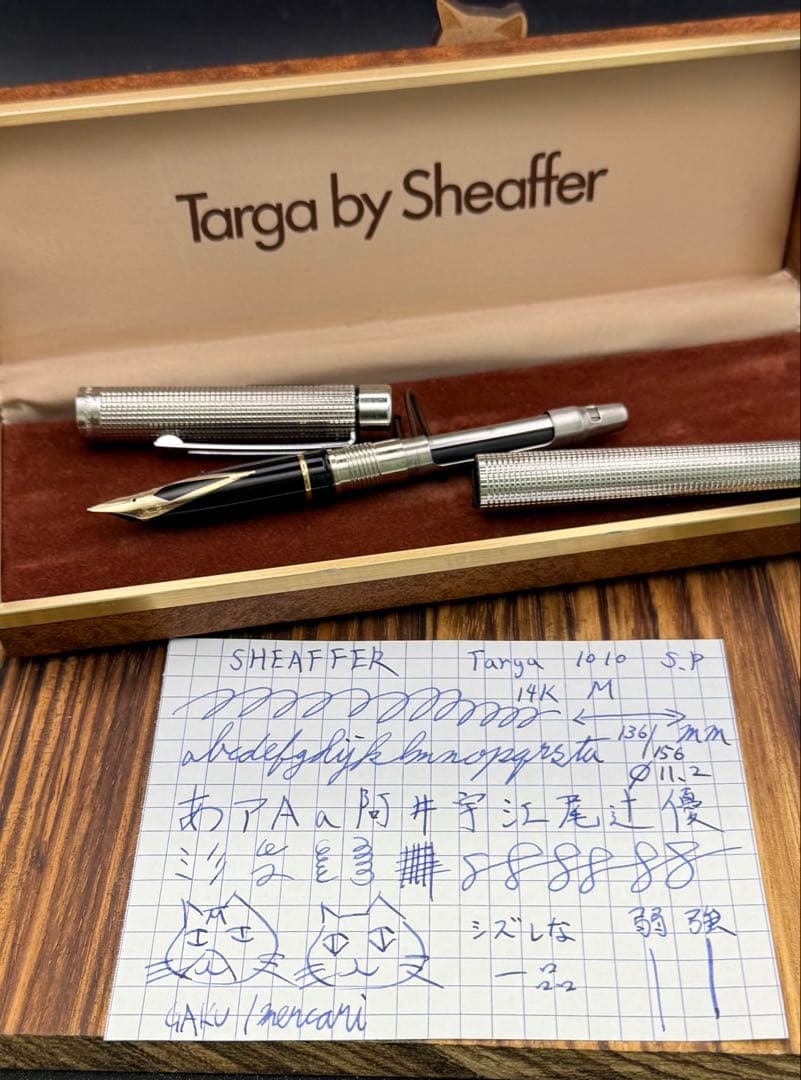 Targa by Sheaffer
SHEAFFER Targa 1010 S.P
14K M
136/156 mm
abcdefghijklmnopqrstu
ø11.2
あアAa阿井宇江尾辻優
シズしな 弱 強
GAKU/mercari